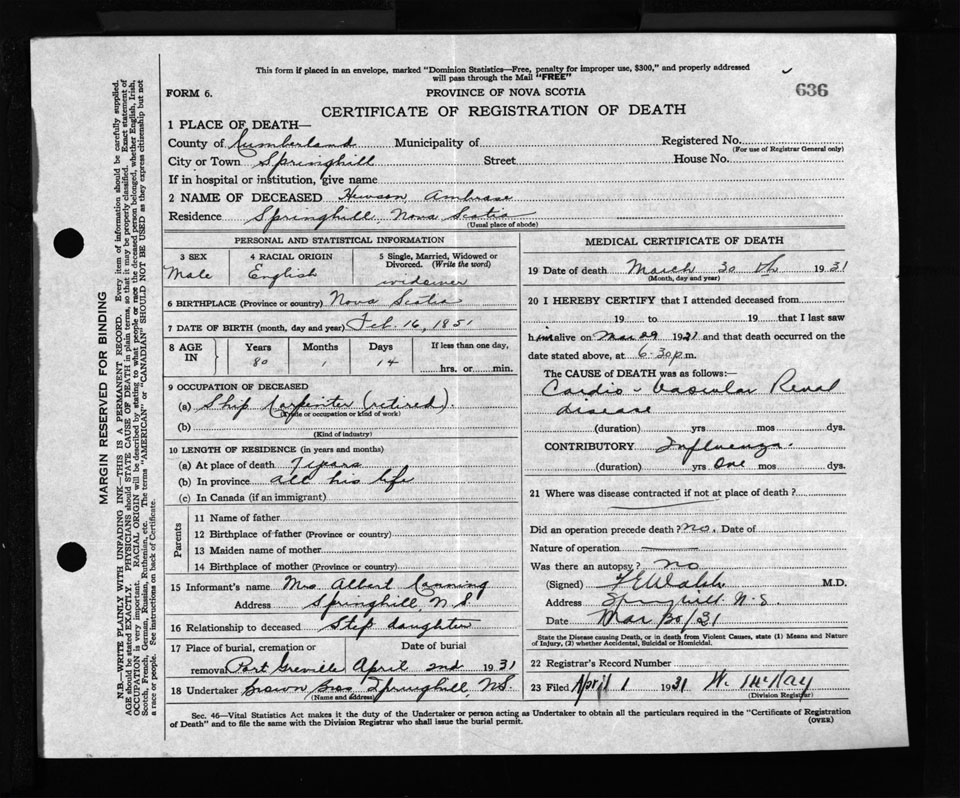 This form if placed in an envelope, marked "Dominion Statistics—Free, penalty for improper use, $300," and properly addressed
will pass through the Mail "FREE"
FORM 6.
PROVINCE OF NOVA SCOTIA
636
CERTIFICATE OF REGISTRATION OF DEATH
1 PLACE OF DEATH—
County of Cumberland Municipality of Registered No.
(For use of Registrar General only)
City or Town Springhill Street House No.
If in hospital or institution, give name
2 NAME OF DECEASED Hewson Ambrose
Residence Springhill Nova Scotia
(Usual place of abode)
PERSONAL AND STATISTICAL INFORMATION
3 SEX 4 RACIAL ORIGIN 5 Single, Married, Widowed or
Divorced. (Write the word)
Male English widower
6 BIRTHPLACE (Province or country) Nova Scotia
7 DATE OF BIRTH (month, day and year) Feb. 16, 1851
8 AGE IN Years Months Days If less than one day,
80 1 14 hrs. or min.
9 OCCUPATION OF DECEASED
(a) Ship Carpenter (retired).
(Trade or occupation or kind of work)
(b)
(Kind of industry)
10 LENGTH OF RESIDENCE (in years and months)
(a) At place of death 7 years
(b) In province all his life
(c) In Canada (if an immigrant)
Parents
11 Name of father
12 Birthplace of father (Province or country)
13 Maiden name of mother
14 Birthplace of mother (Province or country)
15 Informant's name Mrs Albert Canning
Address Springhill, N.S.
16 Relationship to deceased Step daughter
17 Place of burial, cremation or Date of burial
removal Port Greville April 2nd 1931
18 Undertaker Brown Bros Springhill, N.S.
(Name and address)
MEDICAL CERTIFICATE OF DEATH
19 Date of death March 30 th 1931
(Month, day and year)
20 I HEREBY CERTIFY that I attended deceased from
19 to 19 that I last saw
him alive on Mar 29 1931 and that death occurred on the
date stated above, at 6.30 p.m.
The CAUSE OF DEATH was as follows:
Cardio-Vascular Renal
disease
(duration) yrs mos dys.
CONTRIBUTORY Influenza.
(duration) yrs One mos dys.
21 Where was disease contracted if not at place of death?
Did an operation precede death? no. Date of
Nature of operation
Was there an autopsy? no
(Signed) F E Walsh M.D.
Address Springhill N.S.
Date Mar 30/31
State the Disease causing Death, or in death from Violent Causes, state (1) Means and Nature
of Injury, (2) whether Accidental, Suicidal or Homicidal.
22 Registrar's Record Number
23 Filed April 1 1931 W. McKay
(Division Registrar)
Sec. 46—Vital Statistics Act makes it the duty of the Undertaker or person acting as Undertaker to obtain all the particulars required in the "Certificate of Registration
of Death" and to file the same with the Division Registrar who shall issue the burial permit.
(OVER)
MARGIN RESERVED FOR BINDING
N.B.—WRITE PLAINLY WITH UNFADING INK—THIS IS A PERMANENT RECORD. Every item of information should be carefully supplied.
AGE should be stated EXACTLY. PHYSICIANS should STATE CAUSE OF DEATH in plain terms, so that it may be properly classified. Exact statement of
OCCUPATION is very important. RACIAL ORIGIN will be described by stating to what people or race the deceased person belonged, whether English, Irish,
Scotch, French, German, Russian, Ruthenian, etc. The terms "AMERICAN" or "CANADIAN" SHOULD NOT BE USED as they express citizenship but not
a race or people. See instructions on back of Certificate.